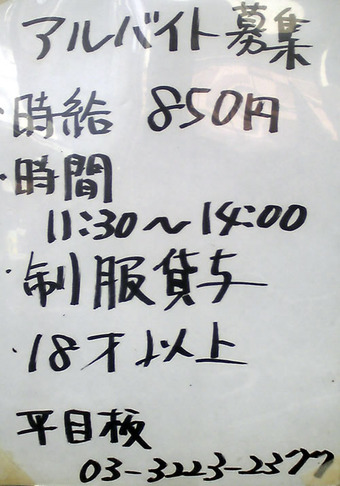 アルバイト募集
・時給 850円
・時間
11:30～14:00
・制服貸与
・18才以上
平目板
03-3223-2377